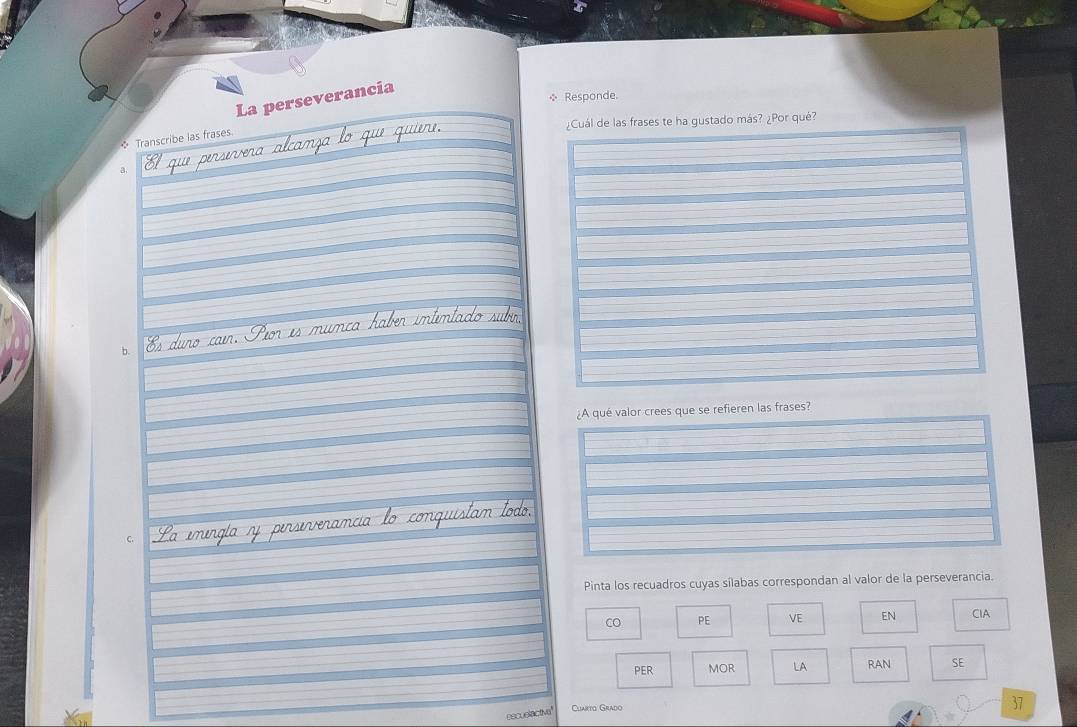 La perseverancia
❖ Transcribe las frases.
a. El que persevera alcanza lo que quiere.
b. Es duro caer. Peor es nunca haber intentado subir.
c. La energía y perseverancia lo conquistan todo.
escuelactiva
❖ Responde.
¿Cuál de las frases te ha gustado más? ¿Por qué?
¿A qué valor crees que se refieren las frases?
Pinta los recuadros cuyas sílabas correspondan al valor de la perseverancia.
CO PE VE EN CIA
PER MOR LA RAN SE
CUARTO GRADO 37